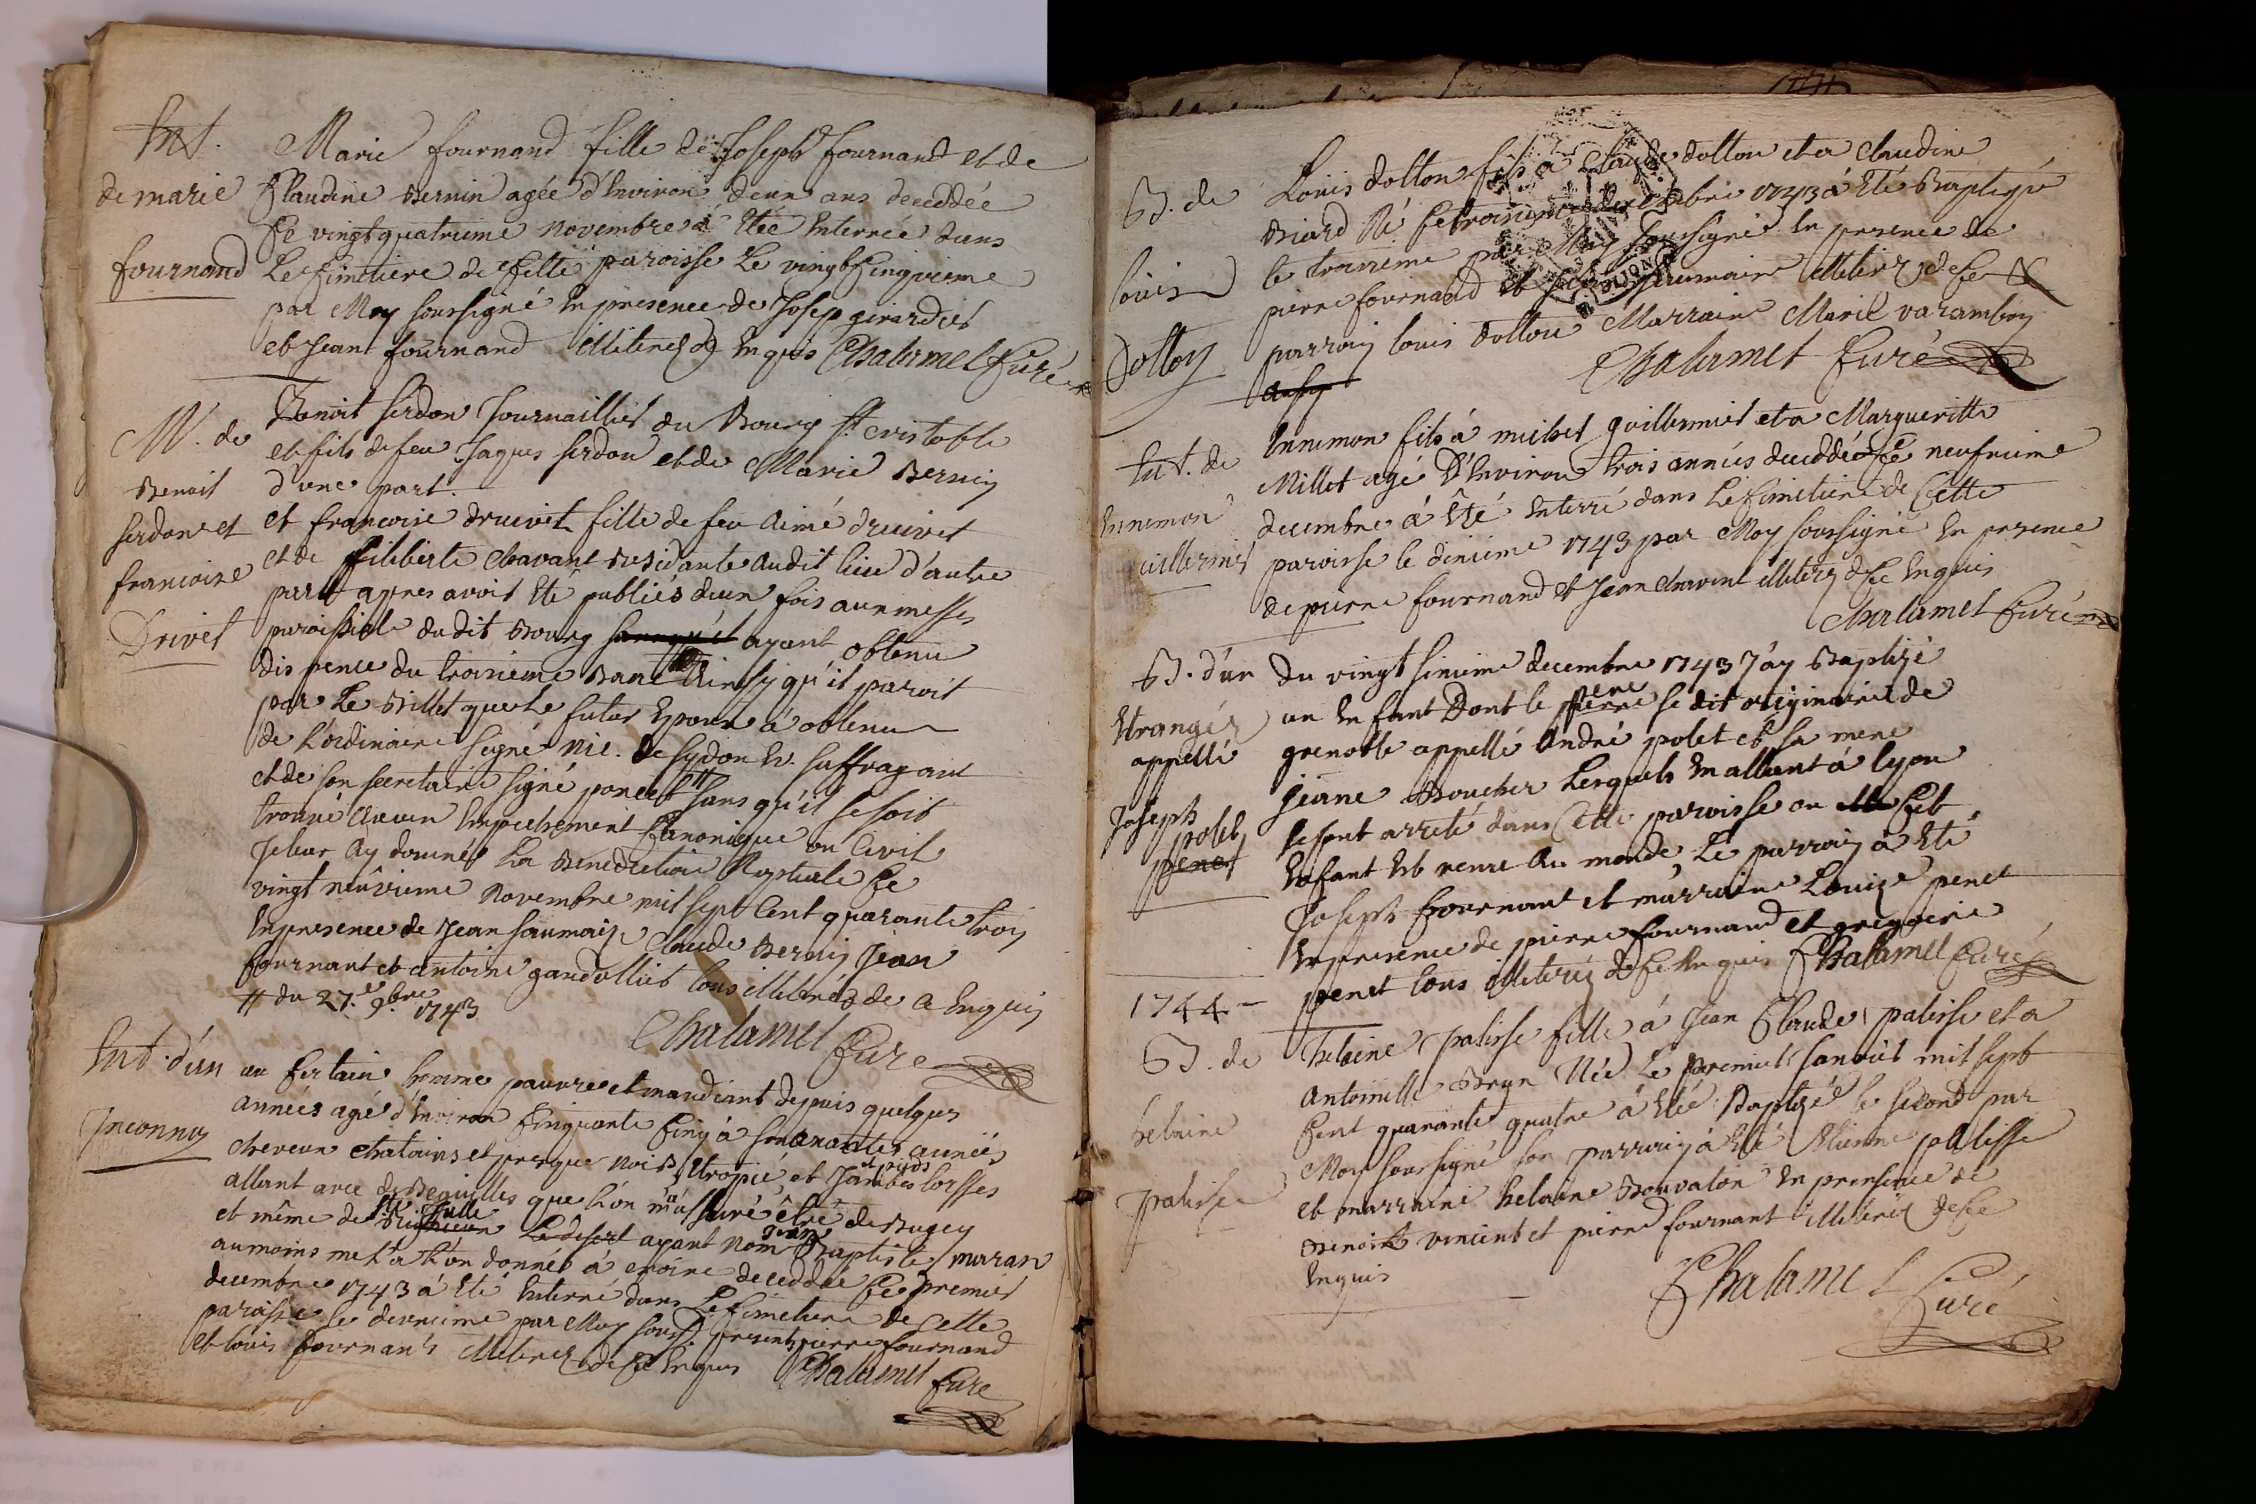 Ent.
de marie
fournand
Marie fournand fille de Joseph fournand et de
Claudine Bernin agée d'Environ deux ans deceddée
Ce vingt quatrieme novembre á étée Enterrée dans
Le Cimetiere de Cette paroisse Le vingt Cinquieme
par Moy soussigné En presence de Josep girardet
et Jean fournand illiterez Enquis Chalamel Curé
M. de
Benoit
serdon et
francoise
Drivet
Benoit serdon Journaillier du Bourg St cristofle
et fils de feu Jaques serdon et de Marie Bernin
d'une part.
et francoise druivet fille de feu Aimé druivet
et de filiberte chavant Residante audit lieu d'autre
part apres avoir Eté publiés deux fois aux messes
paroissiale dudit Bourg ayant obtenu
dispence du troisieme Banc Ainsy qu'il paroit
par Le Billet que Le futur Epoux á obtenu
de L'ordinaire signé nic. de sydon Ev. suffragant
et de son secretaire signé poncet # sans qu'il se soit
trouvé Aucun Empechement Canonique ou Civil
Je leur Ay donnés La Benediction Nuptiale Ce
vingt neuvieme Novembre mil sept Cent quarante trois
En presence de Jean saumaise Claude Bernin Jean
fournant et antoine gandolliet tous illiteréz de ce Enquis
# du 27.e 9.bre 1743
Chalamel Curé
Ent. d'un
Inconnu
un Certain homme pauvre et mandiant depuis quelques
années agé d'Environ Cinquante Cinq á soixante années
cheveux chatains et presque noirs Etropié et Jambes torsses
et pieds
allant avec des Bequilles que L'on m'a assuré être de Bugey
et même de Le desert ayant nom Jean Baptiste maran
aumoins me L'a t'on donnée á croire deceddée Ce premier
decembre 1743 á Eté Enterré dans Le Cimetiere de Cette
paroisse le deuxieme par Moy souss. present pierre fournand
et louis fournand illiterez de Ce Enquis Chalamel Curé
B. de
louis
Dolloy
Louis dollon fils á Claude dollon et a Claudine
Biard Né Ce troisieme decembre 1743 á Eté Baptizé
le troisieme par Moy soussigné En presence de
pierre fournand et Jean saumaire illiterez de Ce
parrain louis dollon Marraine Marie varambon
Chalamel Curé
Ent. de
Ennemon
Guillermet
Ennemon fils á michel guillermet et a Margueritte
Millet agé D'Environ trois années deceddé Ce neufvieme
decembre á Eté Enterré dans Le Cimetiere de Cette
paroisse le dixieme 1743 par Moy soussigné En presence
de pierre fournand et Jean chavent illiterez de Ce Enquis
Chalamel Curé
B. d'un
Etranger
appellé
Joseph
polet
penet
Du vingt sixieme decembre 1743 J'ay Baptizé
un Enfant Dont le pere se dit originaire de
grenoble appellé André polet et sa mere
Jeanne Boucher Lesquels En allant á lyon
se sont arreté dans Cette paroisse ou Cet
Enfant Est venu Au monde, Le parrain a Eté
Joseph fournant et marraine Louize penet
En presence de pierre fournand et gregoire
penet tous illiteréz de Ce Enquis Chalamel Curé
1744 -
B. de
helaine
palisse
helaine palisse fille á Jean Claude palisse et a
Antoinette Brun Née Le premier Janvier mil sept
Cent quarante quatre á Eté Baptizée le second par
Moy soussigné son parrain á Eté Etienne palisse
et marraine helaine Bonvalon En presence de
Benoit vincent et pierre fournant illiteréz de Ce
Enquis
Chalamel Curé